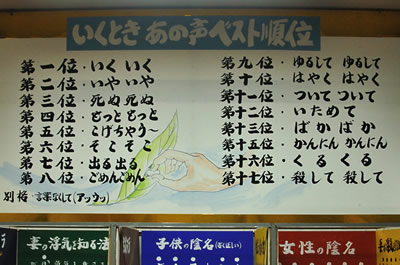 いくとき あの声ベスト順位
第一位・いく いく
第二位・いや いや
第三位・死ぬ 死ぬ
第四位・もっと もっと
第五位・こげちゃう〜
第六位・そこ そこ
第七位・出る 出る
第八位・ごめんごめん
別格・言葉なしで(アッウッ)
第九位・ゆるして ゆるして
第十位・はやく はやく
第十一位・ついて ついて
第十二位・いためて
第十三位・ばか ばか
第十五位・かんにん かんにん
第十六位・くる くる
第十七位・殺して 殺して
妻の浮気を知る法
子供の陰名(なく正しい)
女性の陰名